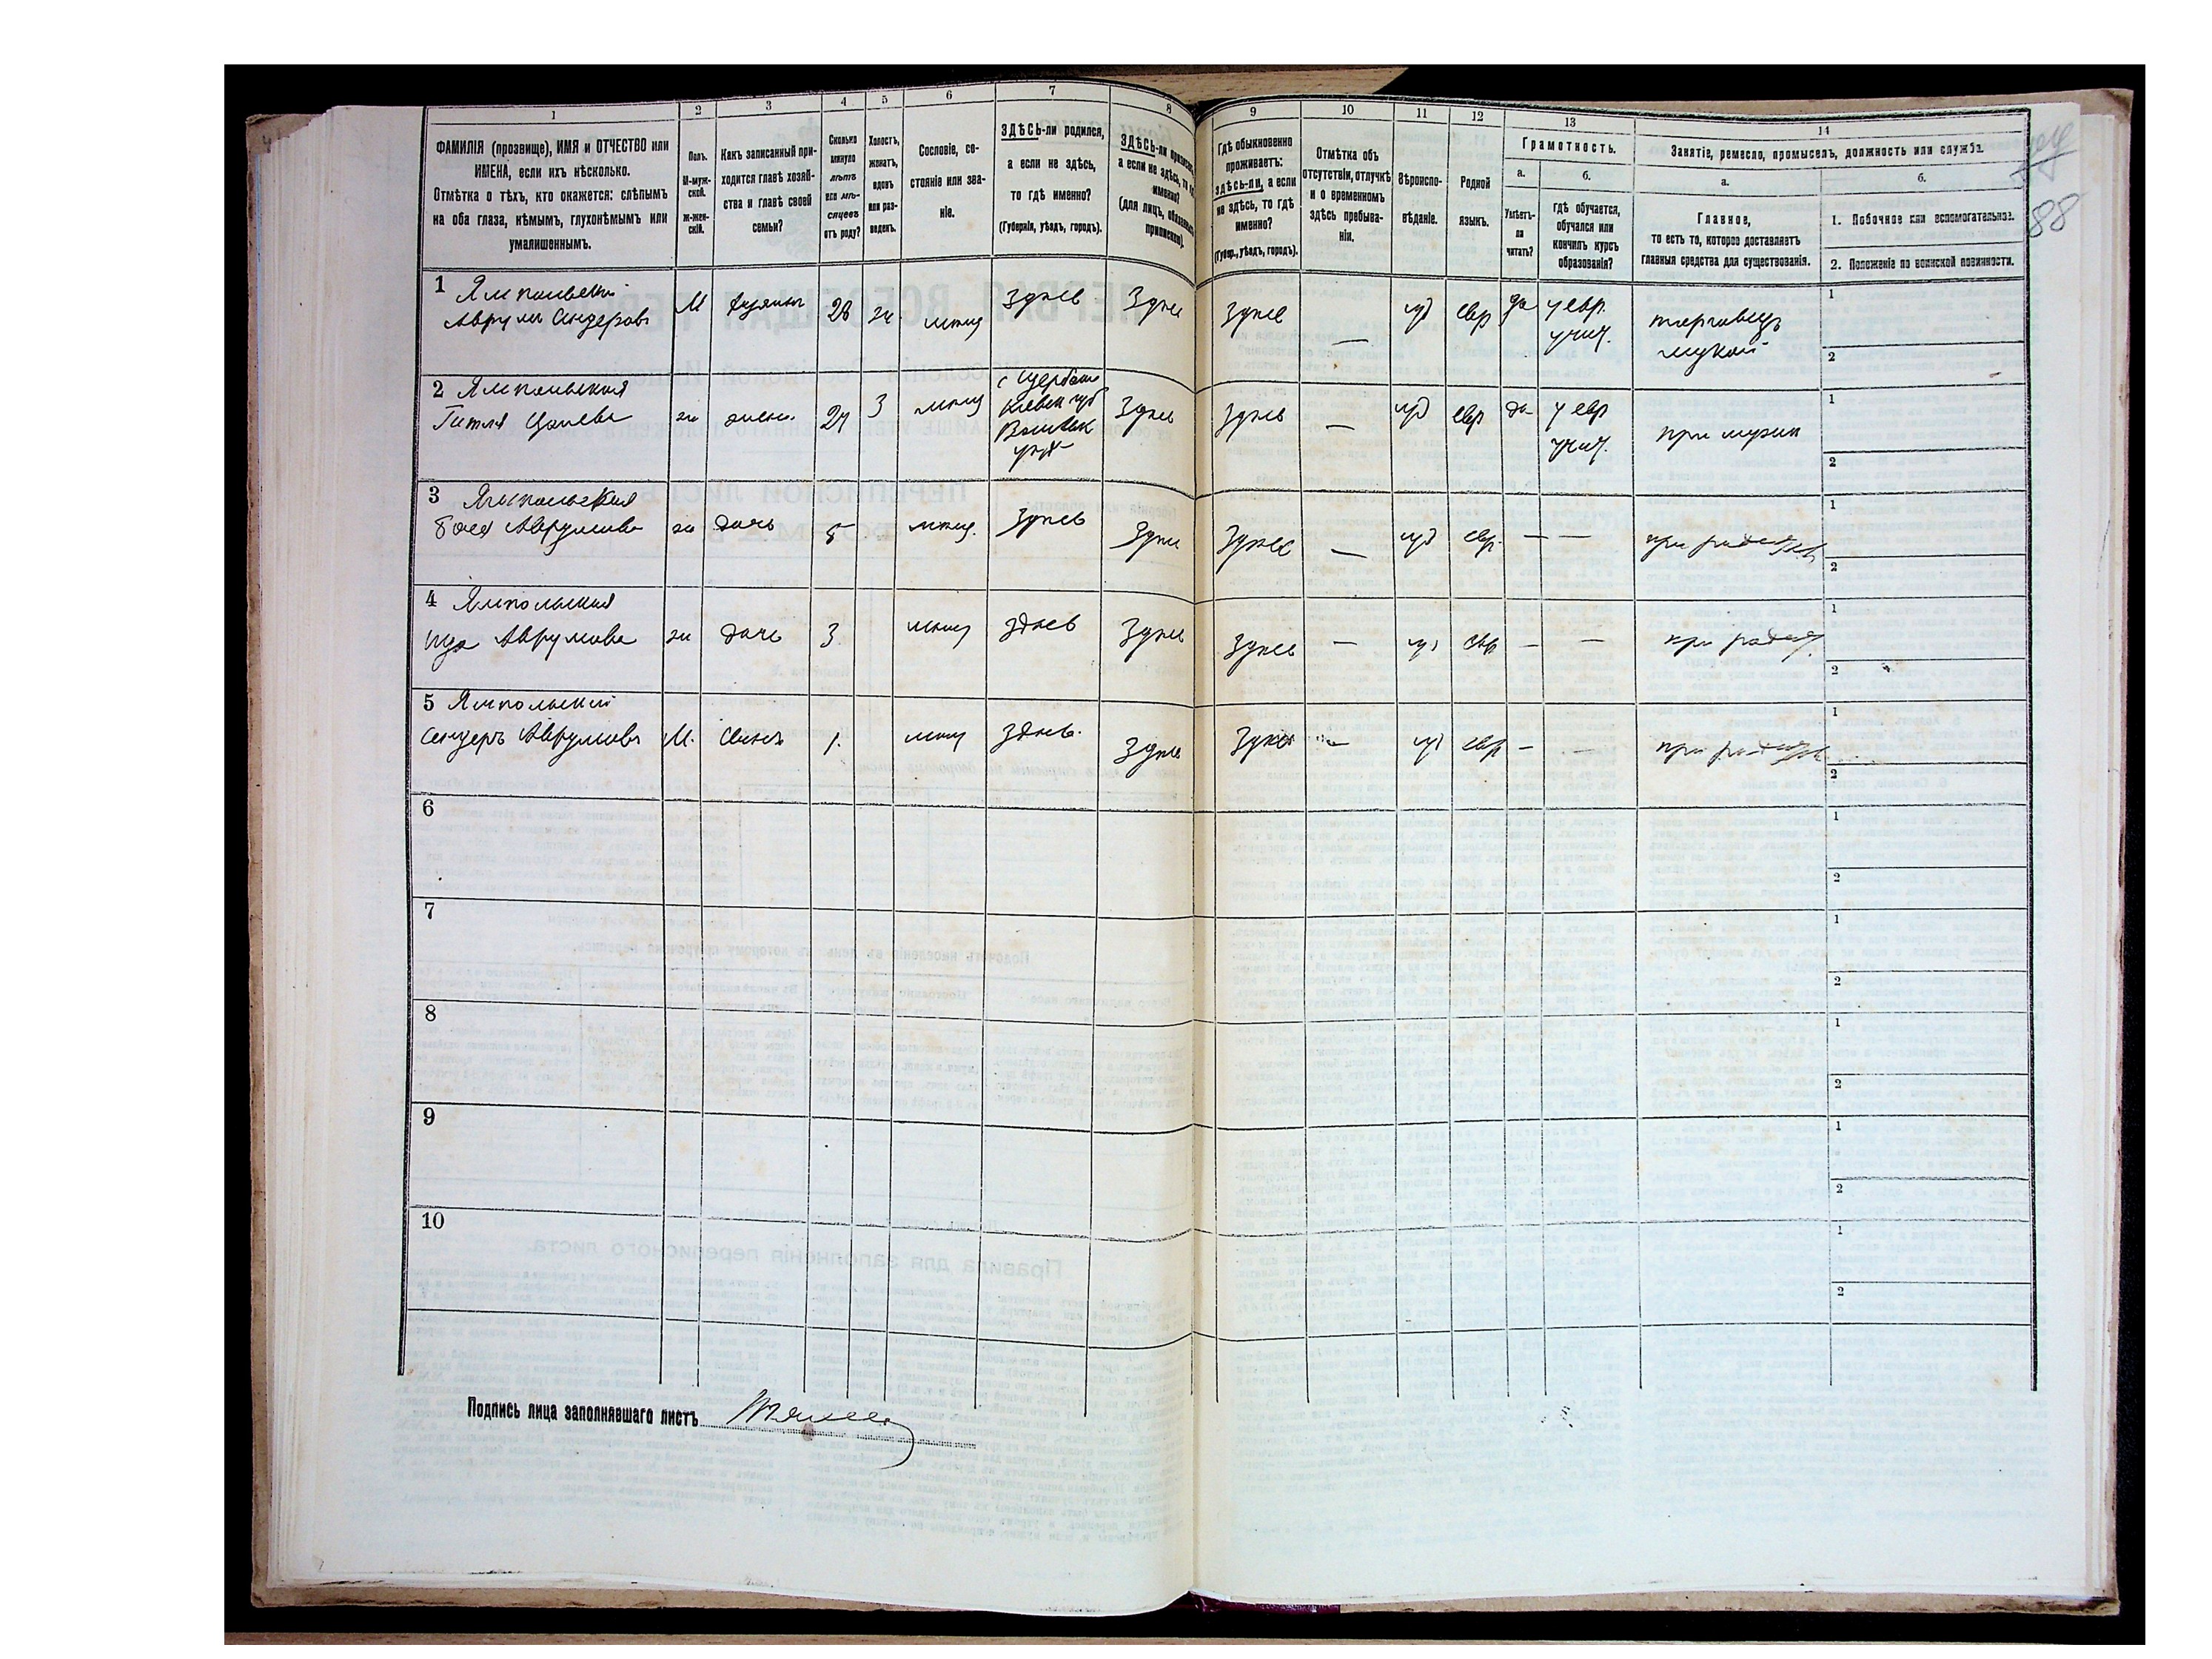 1
2
3
4
5
6
7
8
ФАМИЛІЯ (прозвище), ИМЯ и ОТЧЕСТВО или
ИМЕНА, если ихъ нѣсколько.
Отмѣтка о тѣхъ, кто окажется: слѣпымъ
на оба глаза, нѣмымъ, глухонѣмымъ или
умалишеннымъ.
Полъ.
М-муж-
ской.
Ж-жен-
скій.
Какъ записанный при-
ходится главѣ хозяй-
ства и главѣ своей
семьи?
Сколько
минуло
лѣтъ
или мѣ-
сяцевъ
отъ роду?
Холостъ,
женатъ,
вдовъ
или раз-
веденъ.
Сословіе, со-
стояніе или зва-
ніе.
ЗДѢСЬ-ли родился,
а если не здѣсь,
то гдѣ именно?
(Губернія, уѣздъ, городъ).
ЗДѢСЬ-ли
а если не здѣсь, то
именно?
(для лицъ,
9
10
11
12
13
14
Гдѣ обыкновенно
проживаетъ:
здѣсь-ли, а если
не здѣсь, то гдѣ
именно?
(Губер., уѣздъ, городъ).
Отмѣтка объ
отсутствіи, отлучкѣ
и о временномъ
здѣсь пребыва-
ніи.
Вѣроиспо-
вѣданіе.
Родной
языкъ.
Грамотность.
а.
Умѣетъ-
ли
читать?
б.
Гдѣ обучается,
обучался или
кончилъ курсъ
образованія?
Занятіе, ремесло, промыселъ, должность или служба.
а.
Главное,
то есть то, которое доставляетъ
главныя средства для существованія.
б.
1. Побочное или вспомогательное.
2. Положеніе по воинской повинности.
88
1 Ямпольскій
Аврумъ Сендеровъ
М
хозяинъ
28
ж
мѣщ
здѣсь
Здѣсь
Здѣсь
—
іуд
евр
да
у евр.
учит.
торговецъ
мукой
1
2
2 Ямпольская
Гитля
ж
жена
24
З
мѣщ
Кіевск губ
Васильк
уѣзд
Здѣсь
Здѣсь
—
іуд
евр
да
у евр
учит.
при мужѣ
1
2
3 Ямпольская
Аврумова
ж
дочь
5
мѣщ.
Здѣсь
Здѣсь
Здѣсь
—
іуд
евр.
—
—
при родителяхъ
1
2
4 Ямпольская
Аврумова
ж
дочь
3
мѣщ
здѣсь
Здѣсь
Здѣсь
—
іуд
евр
—
—
при родит.
1
2
5 Ямпольскій
Сендеръ Аврумовъ
М.
сынъ
1.
мѣщ
здѣсь.
Здѣсь
Здѣсь
—
іуд
евр
—
—
при родителях
1
2
6
1
2
7
1
2
8
1
2
9
1
2
10
1
2
Подпись лица заполнявшаго листъ